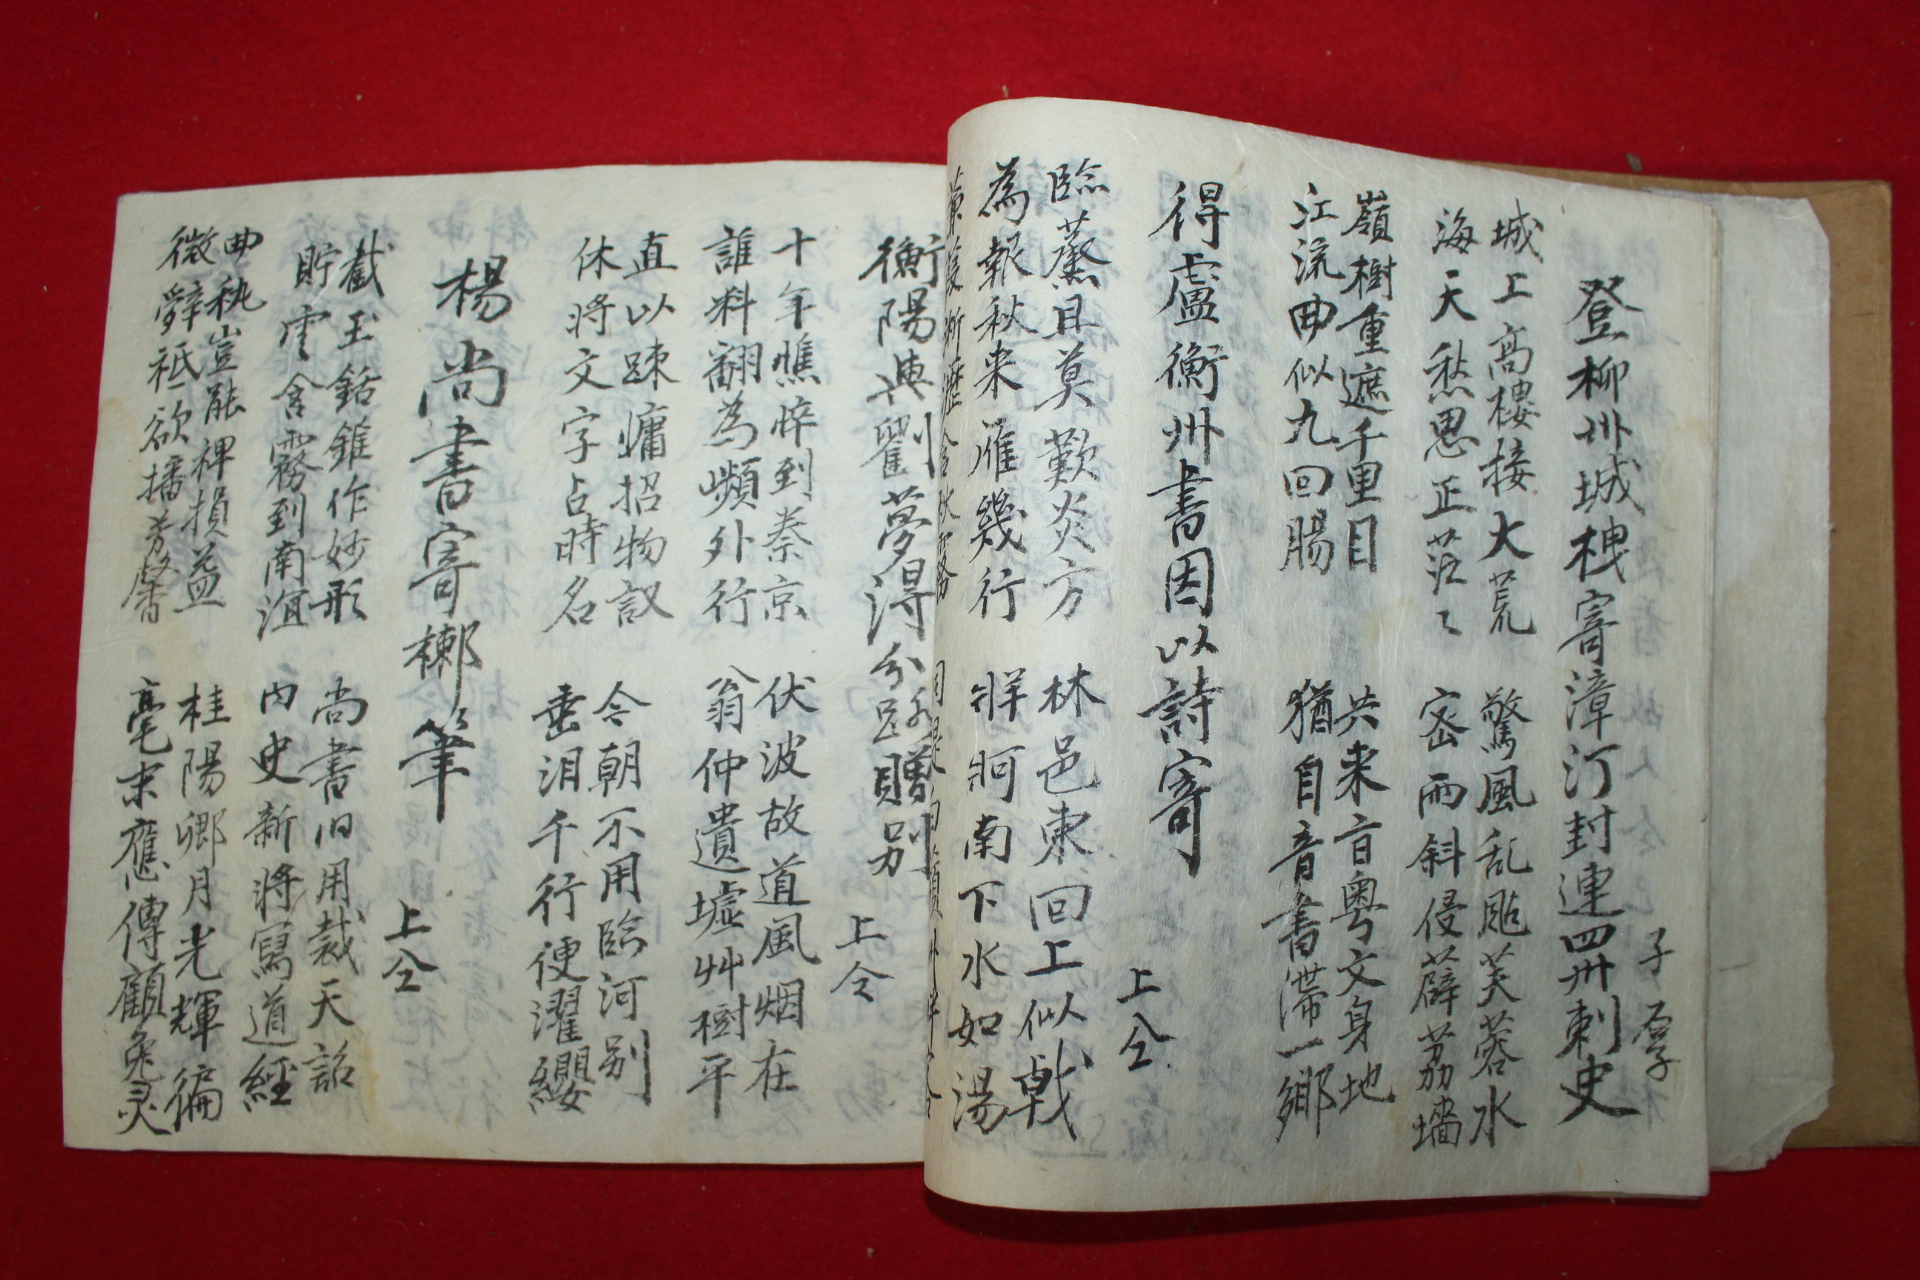 登柳州城樓寄漳汀封連四州刺史
子厚
城上高樓接大荒 驚風乱颭芙蓉水
海天愁思正茫〻 密雨斜侵薜荔墻
嶺樹重遮千里目 共来百粤文身地
江流曲似九回腸 猶自音書滯一鄉
得盧衡州書因以詩寄
上仝
臨蒸且莫歎炎方 林邑東回上似戟
為報秋来雁幾行 牂牁南下水如湯
蒹葭淅瀝含秋霧
衡陽與劉夢得分路贈别
上仝
十年憔悴到秦京 伏波故道風烟在
誰料翻為嶺外行 翁仲遺墟艸樹平
直以踈慵招物議 今朝不用臨河别
休將文字占時名 垂泪千行便濯纓
楊尚書寄郴筆
上仝
截玉銛錐作妙形 尚書旧用裁天詔
貯雲含霧到南溟 内史新將寫道經
曲藝豈能裨損益 桂陽卿月光輝徧
微辭祗欲播芳馨 毫末應傳顧兔灵